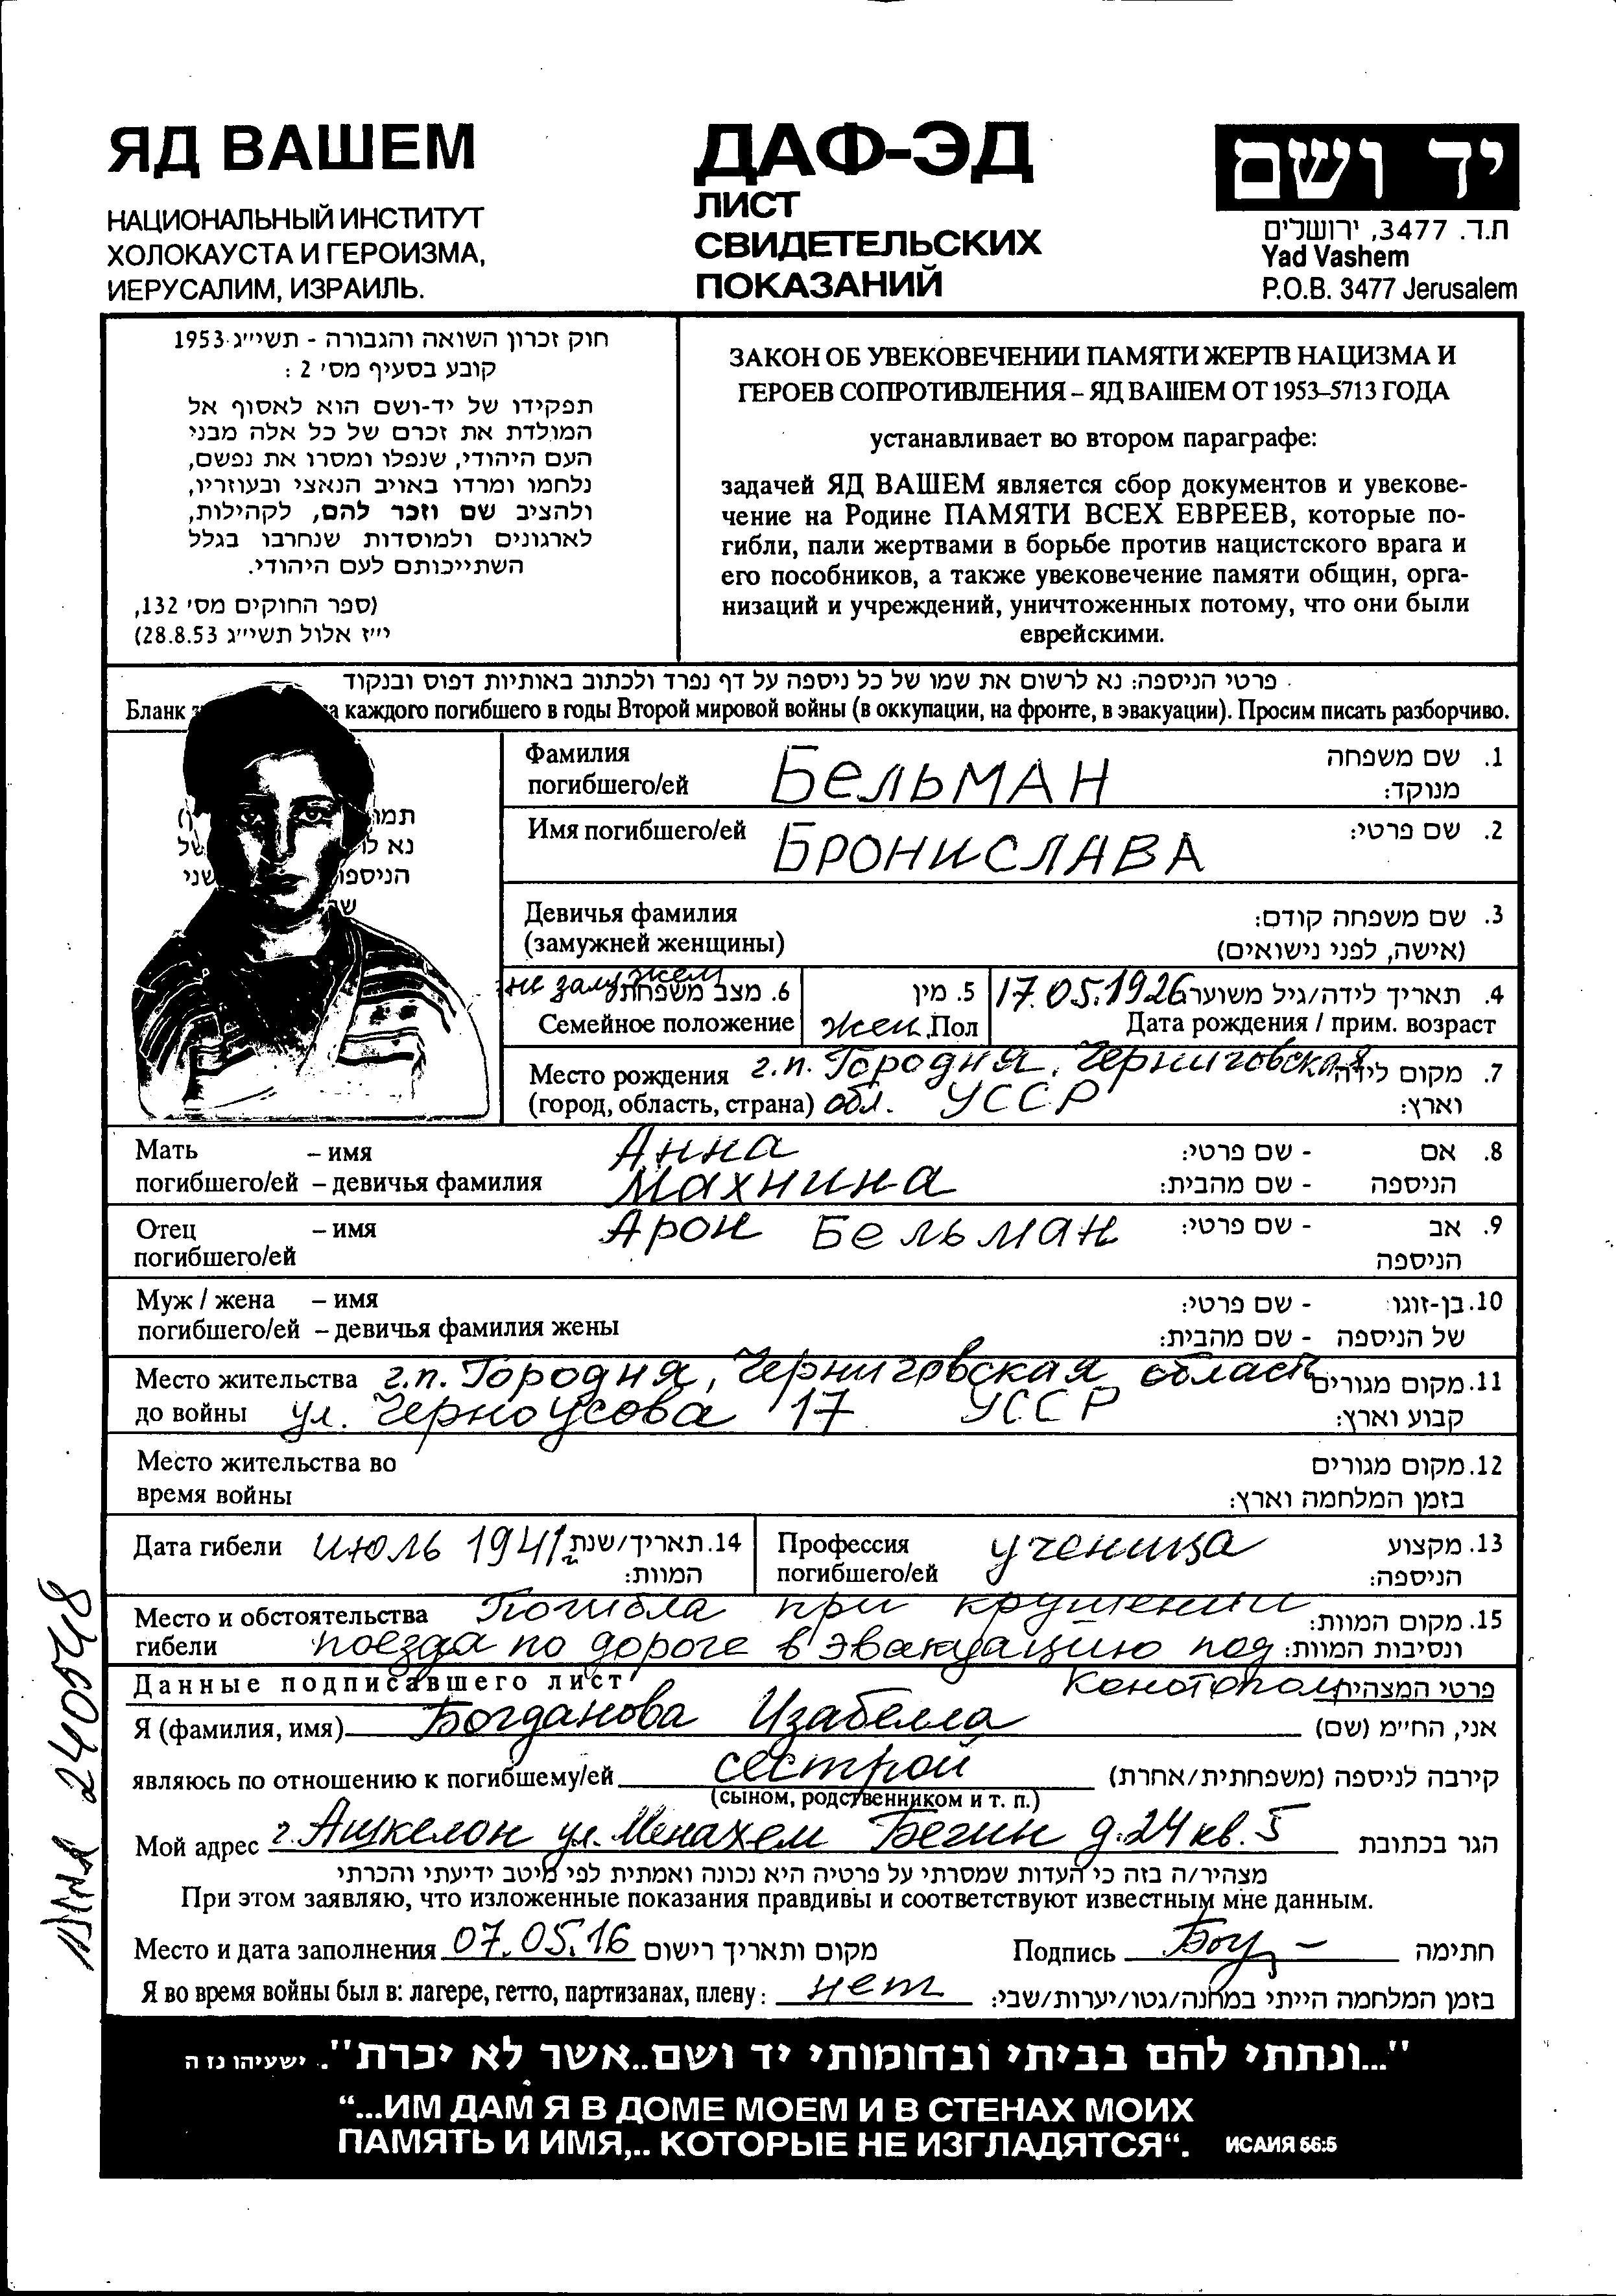 ЯД ВАШЕМ
НАЦИОНАЛЬНЫЙ ИНСТИТУТ
ХОЛОКАУСТА И ГЕРОИЗМА,
ИЕРУСАЛИМ, ИЗРАИЛЬ.
ДАФ-ЭД
ЛИСТ
СВИДЕТЕЛЬСКИХ
ПОКАЗАНИЙ
יד ושם
ת.ד. 3477, ירושלים
Yad Vashem
P.O.B. 3477 Jerusalem
חוק זכרון השואה והגבורה - תשי״ג 1953
קובע בסעיף מס׳ 2 :
תפקידו של יד-ושם הוא לאסוף אל
המולדת את זכרם של כל אלה מבני
העם היהודי, שנפלו ומסרו את נפשם,
נלחמו ומרדו באויב הנאצי ובעוזריו,
ולהציב שם וזכר להם, לקהילות,
לארגונים ולמוסדות שנחרבו בגלל
השתייכותם לעם היהודי.
(ספר החוקים מס׳ 132,
י״ז אלול תשי״ג 28.8.53)
ЗАКОН ОБ УВЕКОВЕЧЕНИИ ПАМЯТИ ЖЕРТВ НАЦИЗМА И
ГЕРОЕВ СОПРОТИВЛЕНИЯ – ЯД ВАШЕМ ОТ 1953–5713 ГОДА
устанавливает во втором параграфе:
задачей ЯД ВАШЕМ является сбор документов и увекове-
чение на Родине ПАМЯТИ ВСЕХ ЕВРЕЕВ, которые по-
гибли, пали жертвами в борьбе против нацистского врага и
его пособников, а также увековечение памяти общин, орга-
низаций и учреждений, уничтоженных потому, что они были
еврейскими.
פרטי הניספה: נא לרשום את שמו של כל ניספה על דף נפרד ולכתוב באותיות דפוס ובנקוד
Бланк каждого погибшего в годы Второй мировой войны (в оккупации, на фронте, в эвакуации). Просим писать разборчиво.
נא
Фамилия שם משפחה .1
погибшего/ей Бельман מנוקד:
Имя погибшего/ей БРОНИСЛАВА שם פרטי: .2
Девичья фамилия שם משפחה קודם: .3
(замужней женщины) (אישה, לפני נישואים)
не замужем 6. מצב משפחתי 5. מין 17.05.1926 תאריך לידה/גיל משוער .4
Семейное положение жен. Пол Дата рождения / прим. возраст
Место рождения г.п. Городня, Черниговская מקום לידה .7
(город, область, страна) обл. УССР וארץ:
Мать – имя Анна - שם פרטי: אם .8
погибшего/ей – девичья фамилия Махнина - שם מהבית: הניספה
Отец – имя Арон Бельман - שם פרטי: אב .9
погибшего/ей הניספה
Муж / жена – имя - שם פרטי: בן-זוגו .10
погибшего/ей – девичья фамилия жены - שם מהבית: של הניספה
Место жительства г.п. Городня, Черниговская область מקום מגורים .11
до войны ул. Черноусова 17 УССР קבוע וארץ:
Место жительства во מקום מגורים .12
время войны בזמן המלחמה וארץ:
Дата гибели июль 1941г. תאריך/שנת .14 Профессия ученица מקצוע .13
המוות: погибшего/ей הניספה:
Место и обстоятельства Погибла при крушении מקום המוות: .15
гибели поезда по дороге в эвакуацию под ונסיבות המוות:
Данные подписавшего лист Конотопом פרטי המצהיר
Я (фамилия, имя) Богданова Изабелла אני, החי״מ (שם)
являюсь по отношению к погибшему/ей сестрой קירבה לניספה (משפחתית/אחרת)
(сыном, родственником и т. п.)
Мой адрес г. Ашкелон ул. Менахем Бегин д. 24 кв. 5 הגר בכתובת
מצהיר/ה בזה כי העדות שמסרתי על פרטיה היא נכונה ואמתית לפי מיטב ידיעתי והכרתי
При этом заявляю, что изложенные показания правдивы и соответствуют известным мне данным.
Место и дата заполнения 07.05.16 מקום ותאריך רישום Подпись חתימה
Я во время войны был в: лагере, гетто, партизанах, плену: нет בזמן המלחמה הייתי במחנה/גטו/יערות/שבי:
240548
"...ונתתי להם בביתי ובחומותי יד ושם..אשר לא יכרת". ישעיהו נז ה
“...ИМ ДАМ Я В ДОМЕ МОЕМ И В СТЕНАХ МОИХ
ПАМЯТЬ И ИМЯ,.. КОТОРЫЕ НЕ ИЗГЛАДЯТСЯ“. ИСАИЯ 56:5